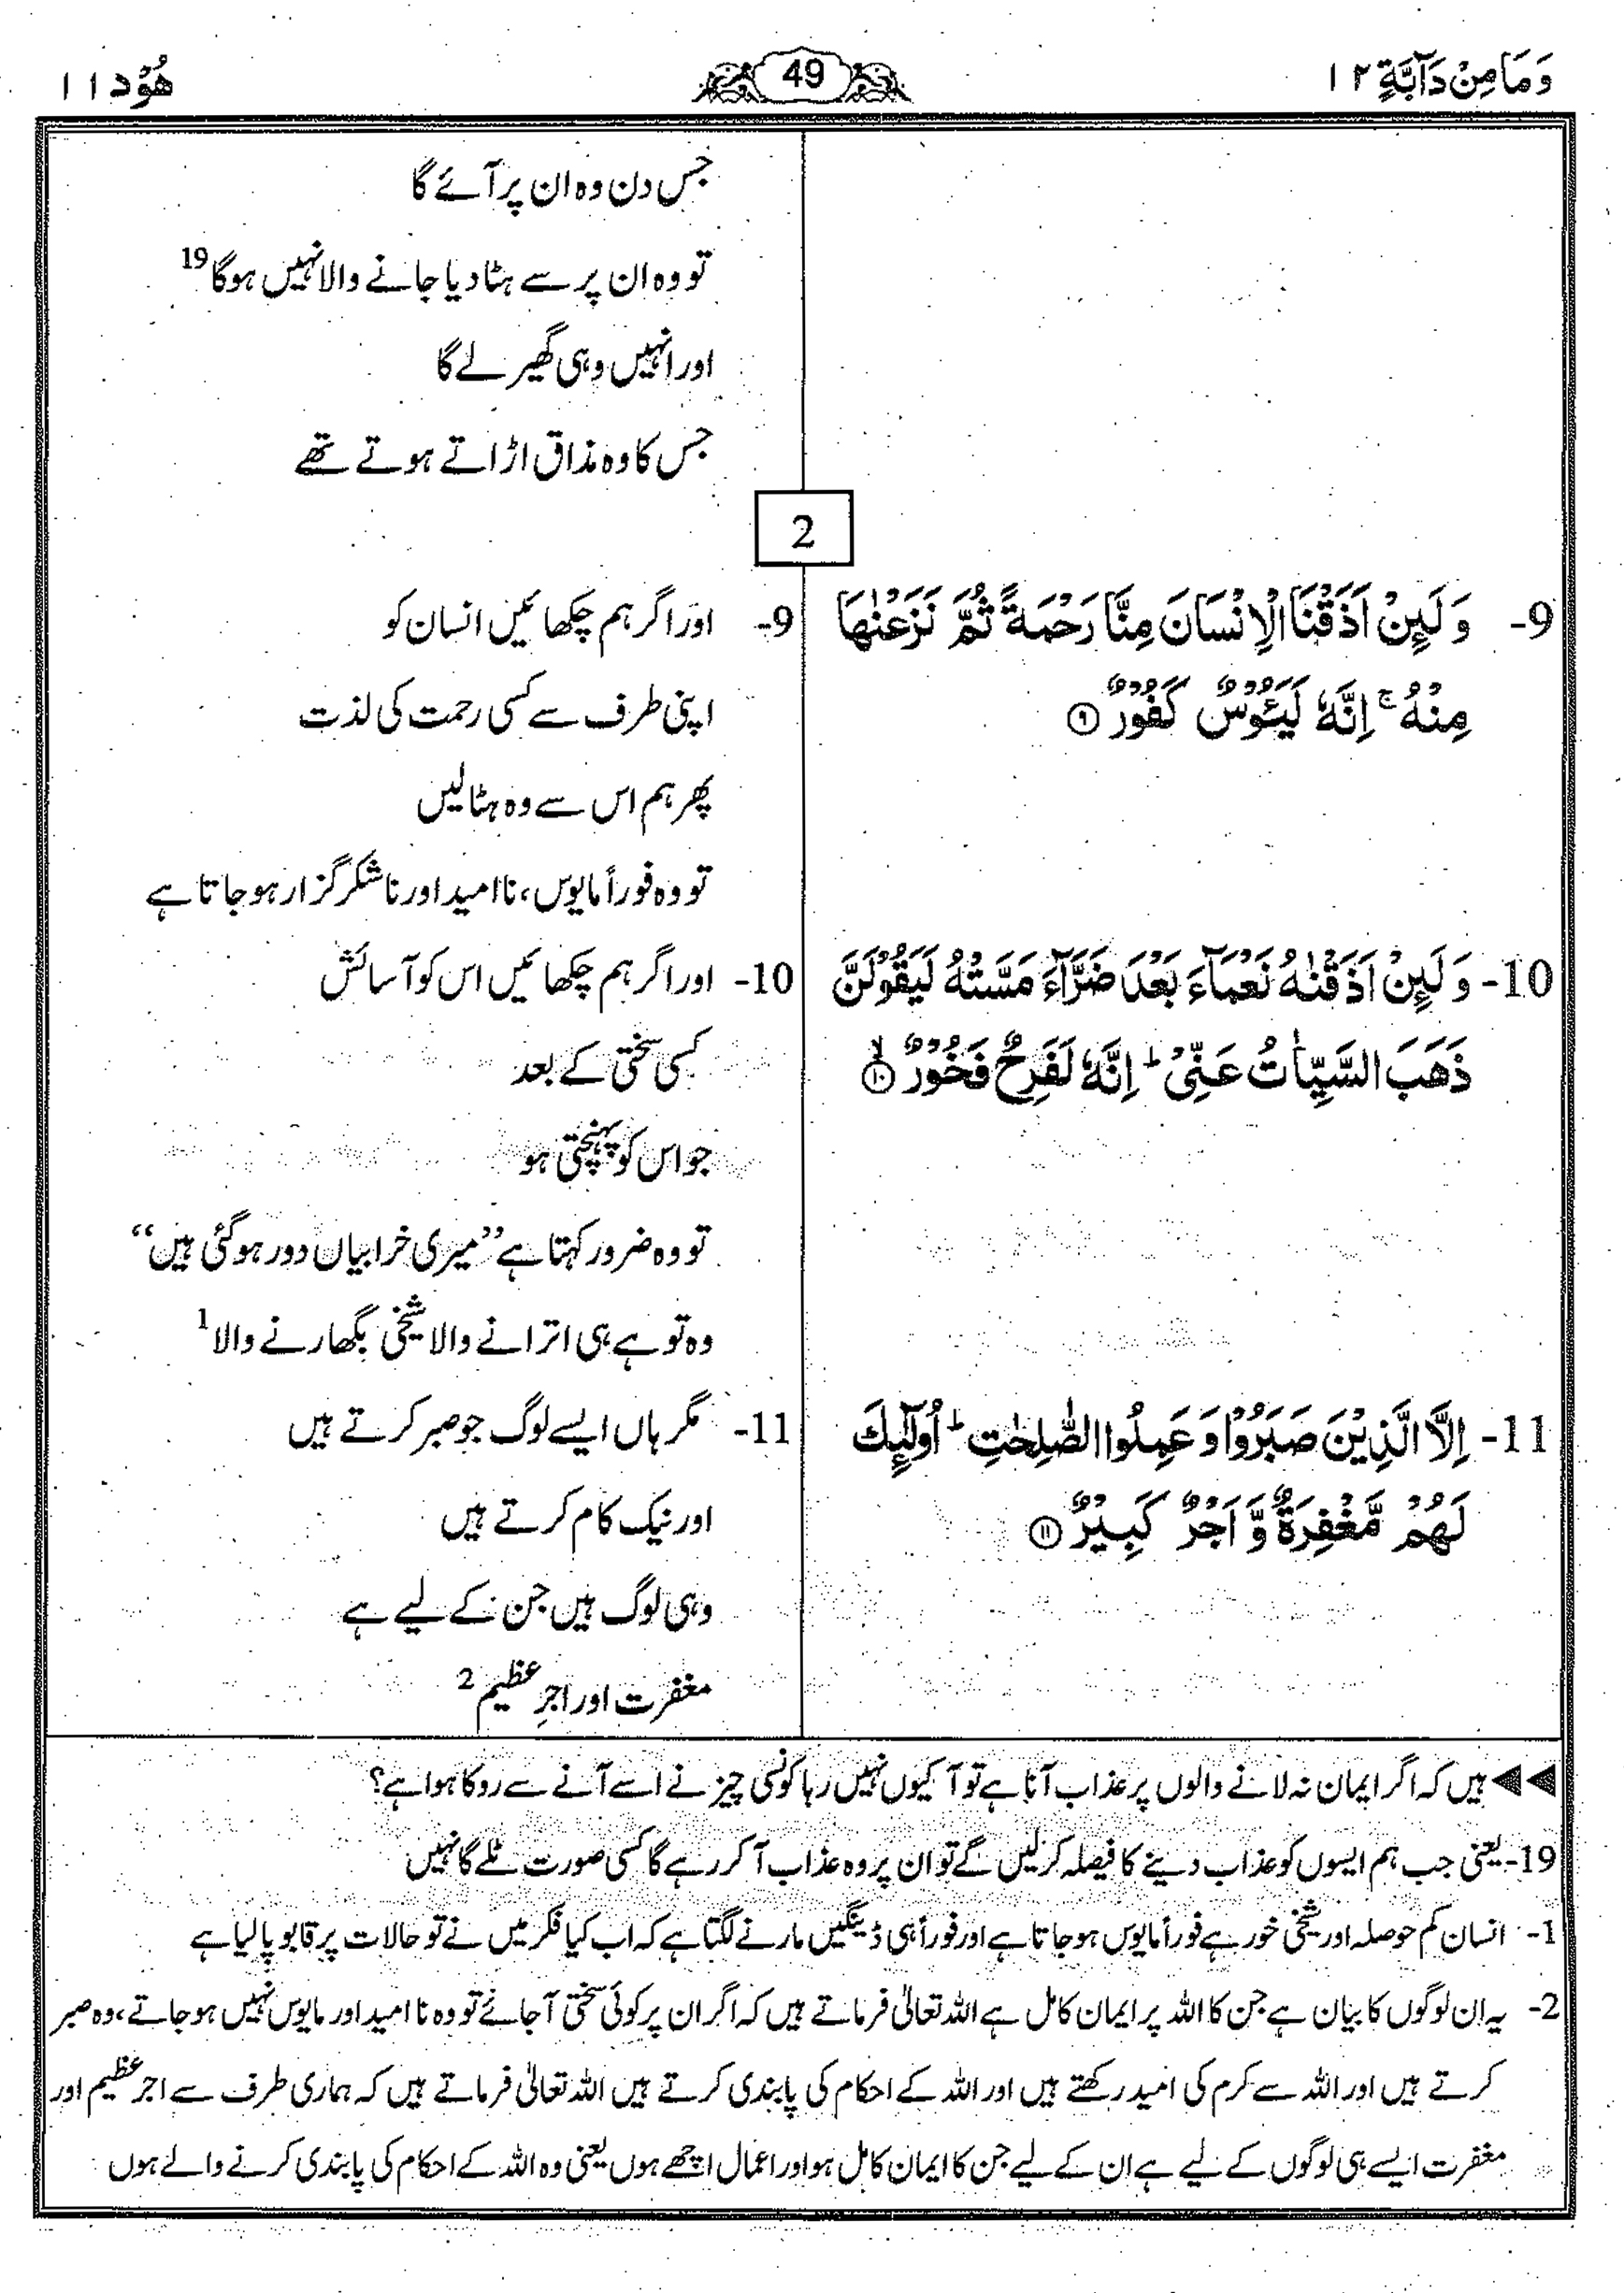 وَمَا مِنْ دَآبَّةٍ ۱۲
49
هُوْد ۱۱
جس دن وہ ان پر آئے گا
تو وہ ان پر سے ہٹا دیا جانے والا نہیں ہوگا 19
اور انہیں وہی گھیر لے گا
جس کا وہ مذاق اڑاتے ہوتے تھے
2
9- وَلَىِٕنْ اَذَقْنَا الْاِنْسَانَ مِنَّا رَحْمَةً ثُمَّ نَزَعْنٰهَا
مِنْهُ ۚ اِنَّهٗ لَيَـُٔوْسٌ كَفُوْرٌ ۹
9- اور اگر ہم چکھائیں انسان کو
اپنی طرف سے کسی رحمت کی لذت
پھر ہم اس سے وہ ہٹا لیں
تو وہ فوراً مایوس، ناامید اور ناشکر گزار ہو جاتا ہے
10- وَلَىِٕنْ اَذَقْنٰهُ نَعْمَآءَ بَعْدَ ضَرَّآءَ مَسَّتْهُ لَيَقُوْلَنَّ
ذَهَبَ السَّيِّاٰتُ عَنِّىْ ؕ اِنَّهٗ لَفَرِحٌ فَخُوْرٌ ۙ ۱۰
10- اور اگر ہم چکھائیں اس کو آسائش
کسی سختی کے بعد
جو اس کو پہنچتی ہو
تو وہ ضرور کہتا ہے ’’میری خرابیاں دور ہو گئی ہیں‘‘
وہ تو ہے ہی اترانے والا شیخی بگھارنے والا 1
11- اِلَّا الَّذِيْنَ صَبَرُوْا وَعَمِلُوا الصّٰلِحٰتِ ؕ اُولٰٓىِٕكَ
لَهُمْ مَّغْفِرَةٌ وَّاَجْرٌ كَبِيْرٌ ۱۱
11- مگر ہاں ایسے لوگ جو صبر کرتے ہیں
اور نیک کام کرتے ہیں
وہی لوگ ہیں جن کے لیے ہے
مغفرت اور اجرِ عظیم 2
◀◀ ہیں کہ اگر ایمان نہ لانے والوں پر عذاب آنا ہے تو آ کیوں نہیں رہا کونسی چیز نے اسے آنے سے روکا ہوا ہے؟
19- یعنی جب ہم ایسوں کو عذاب دینے کا فیصلہ کر لیں گے تو ان پر وہ عذاب آ کر رہے گا کسی صورت ٹلے گا نہیں
1- انسان کم حوصلہ اور شیخی خور ہے فوراً مایوس ہو جاتا ہے اور فوراً ہی ڈینگیں مارنے لگتا ہے کہ اب کیا فکر میں نے تو حالات پر قابو پا لیا ہے
2- یہ ان لوگوں کا بیان ہے جن کا اللہ پر ایمان کامل ہے اللہ تعالیٰ فرماتے ہیں کہ اگر ان پر کوئی سختی آ جائے تو وہ ناامید اور مایوس نہیں ہو جاتے، وہ صبر
کرتے ہیں اور اللہ سے کرم کی امید رکھتے ہیں اور اللہ کے احکام کی پابندی کرتے ہیں اللہ تعالیٰ فرماتے ہیں کہ ہماری طرف سے اجر عظیم اور
مغفرت ایسے ہی لوگوں کے لیے ہے ان کے لیے جن کا ایمان کامل ہو اور اعمال اچھے ہوں یعنی وہ اللہ کے احکام کی پابندی کرنے والے ہوں